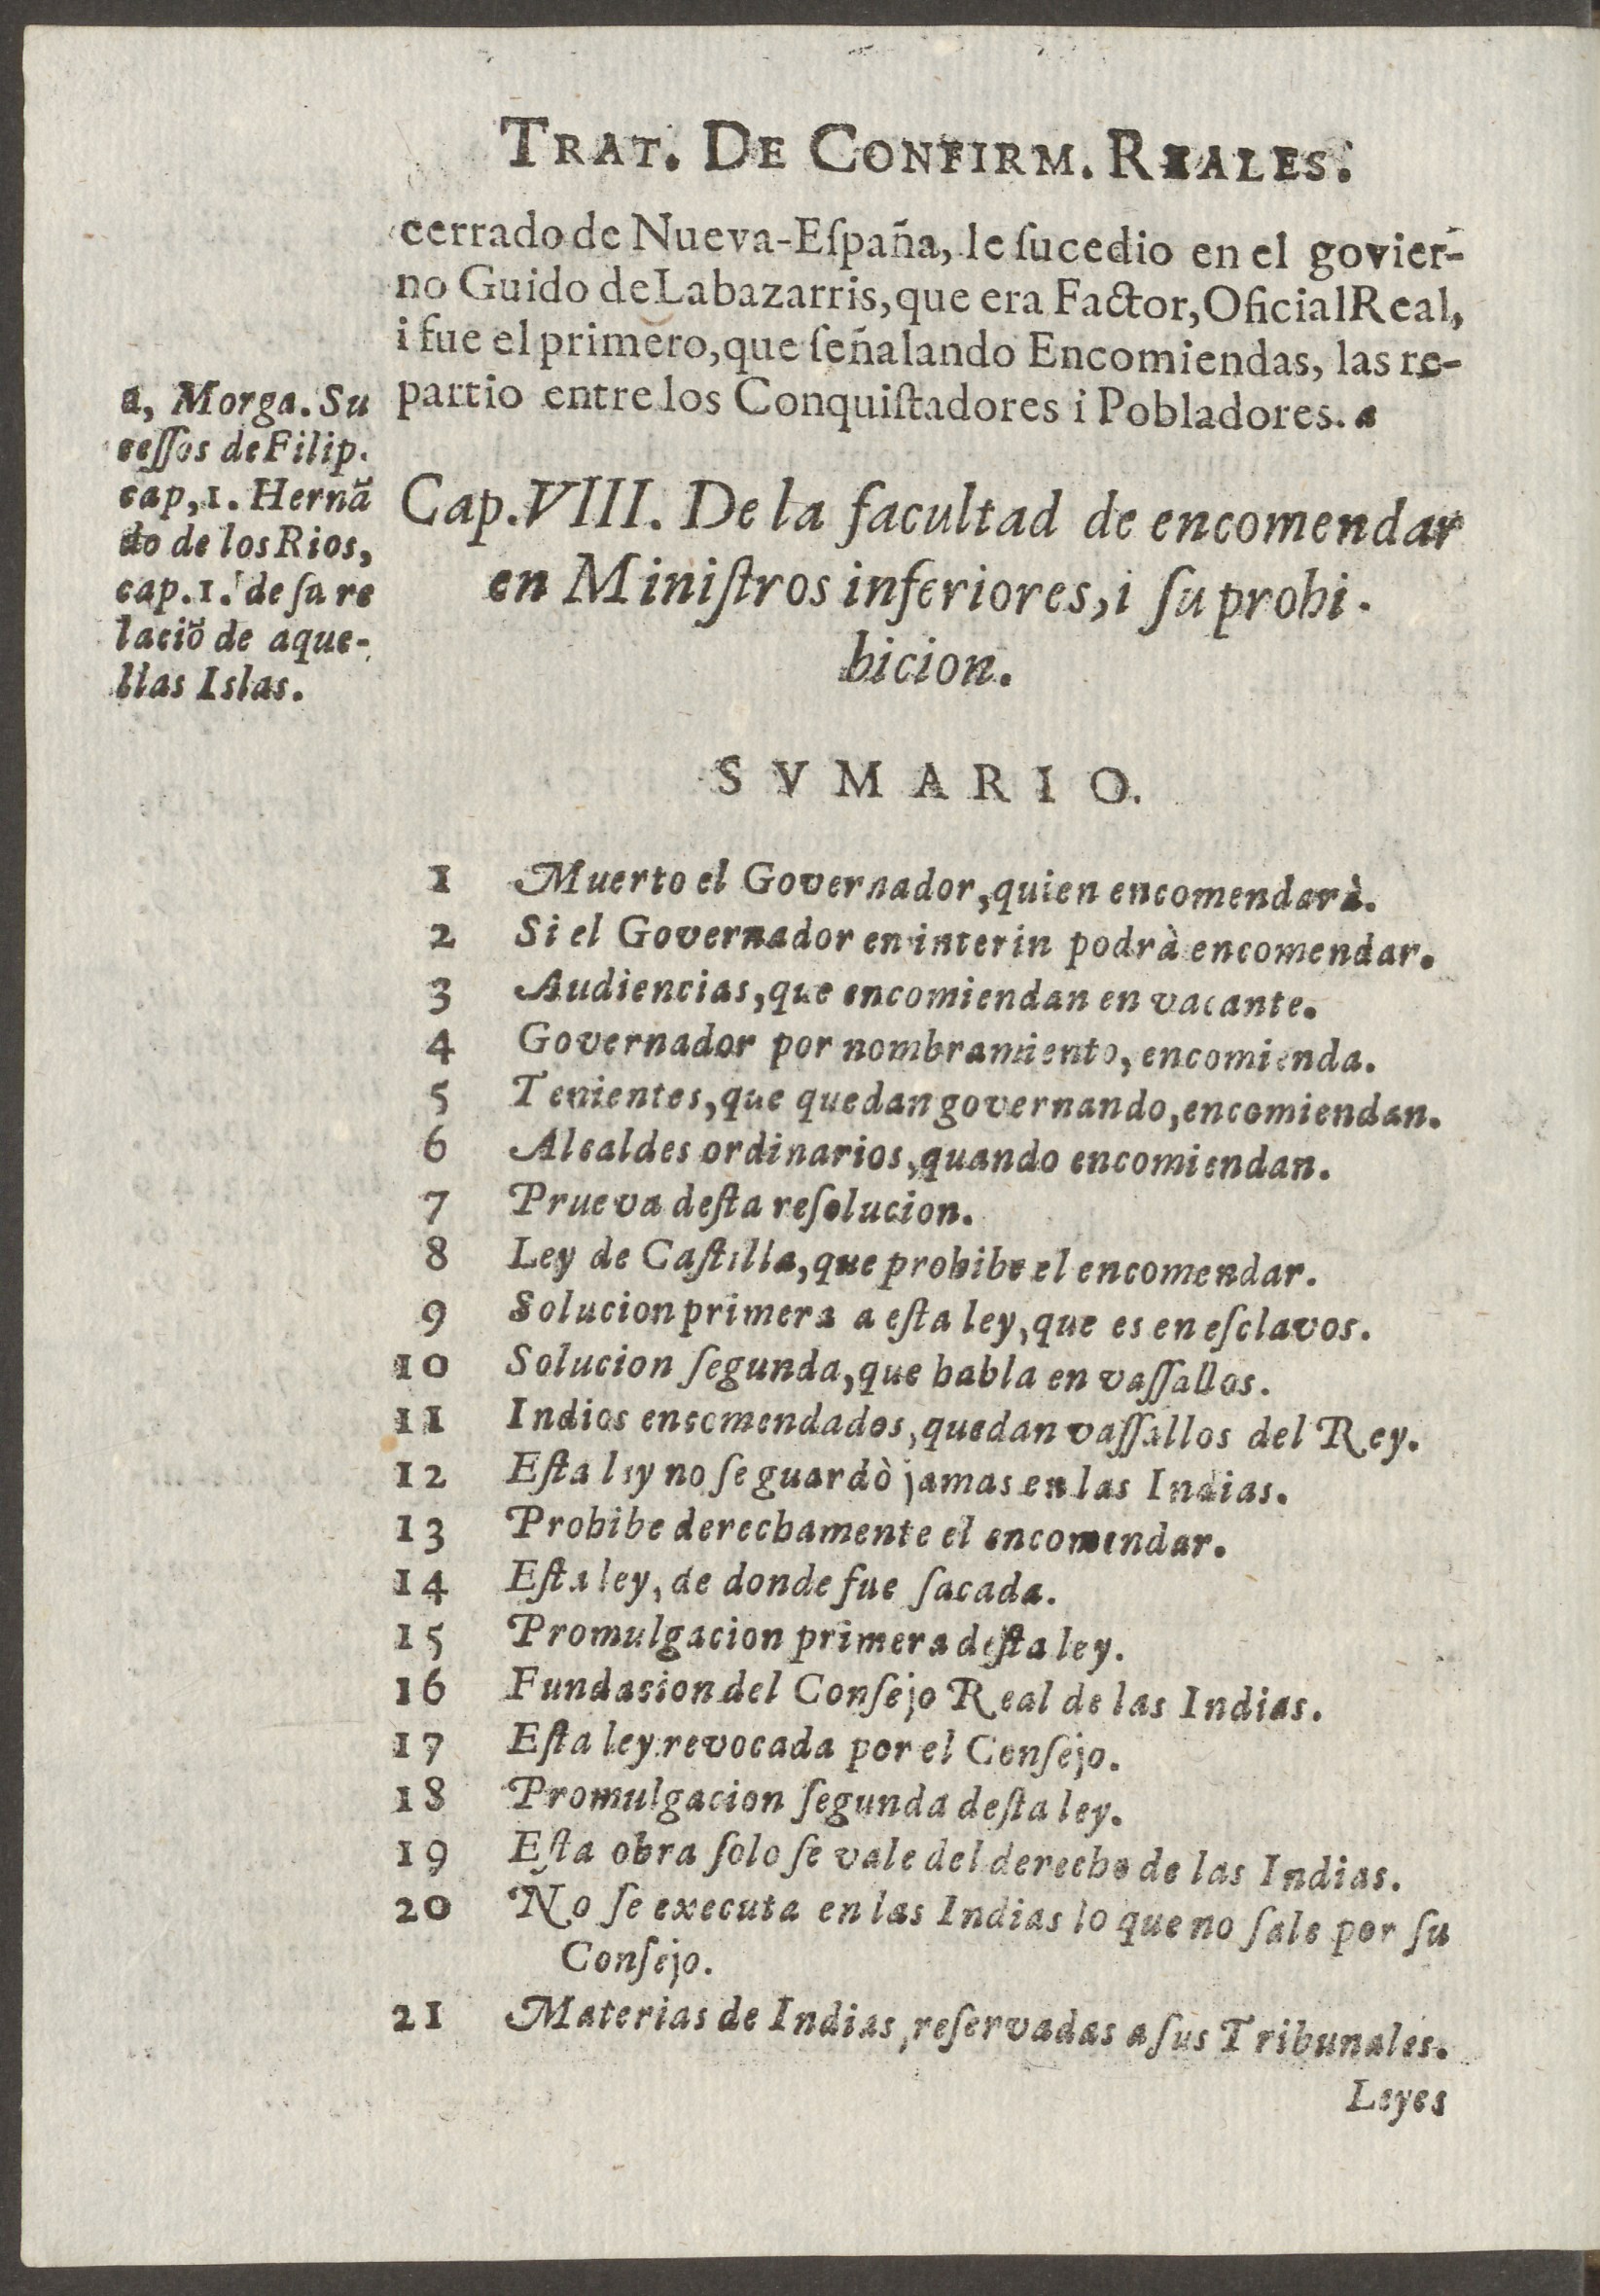 TRAT. DE CONFIRM. REALES.
cerrado de Nueva-Eſpaña, le ſucedio en el govier-
no Guido de Labazarris, que era Factor, Oficial Real,
i fue el primero, que ſeñalando Encomiendas, las re-
partio entre los Conquiſtadores i Pobladores. a
a, Morga. Su
ceſſos de Filip.
cap, 1. Hernã
do de los Rios,
cap. 1. de ſu re
laciõ de aque-
llas Islas.
Cap. VIII. De la facultad de encomendar
en Miniſtros inferiores, i ſu prohi.
bicion.
SVMARIO.
1 Muerto el Governador, quien encomendarà.
2 Si el Governador en interin podrà encomendar.
3 Audiencias, que encomiendan en vacante.
4 Governador por nombramiento, encomienda.
5 Tenientes, que quedan governando, encomiendan.
6 Alcaldes ordinarios, quando encomiendan.
7 Prueva deſta reſolucion.
8 Ley de Caſtilla, que prohibe el encomendar.
9 Solucion primera a eſta ley, que es en eſclavos.
10 Solucion ſegunda, que habla en vaſſallos.
11 Indios encomendados, quedan vaſſallos del Rey.
12 Eſta ley no ſe guardò jamas en las Indias.
13 Prohibe derechamente el encomendar.
14 Eſta ley, de donde fue ſacada.
15 Promulgacion primera deſta ley.
16 Fundacion del Conſejo Real de las Indias.
17 Eſta ley revocada por el Conſejo.
18 Promulgacion ſegunda deſta ley.
19 Eſta obra ſolo ſe vale del derecho de las Indias.
20 No ſe executa en las Indias lo que no ſale por ſu
Conſejo.
21 Materias de Indias, reſervadas a ſus Tribunales.
Leyes